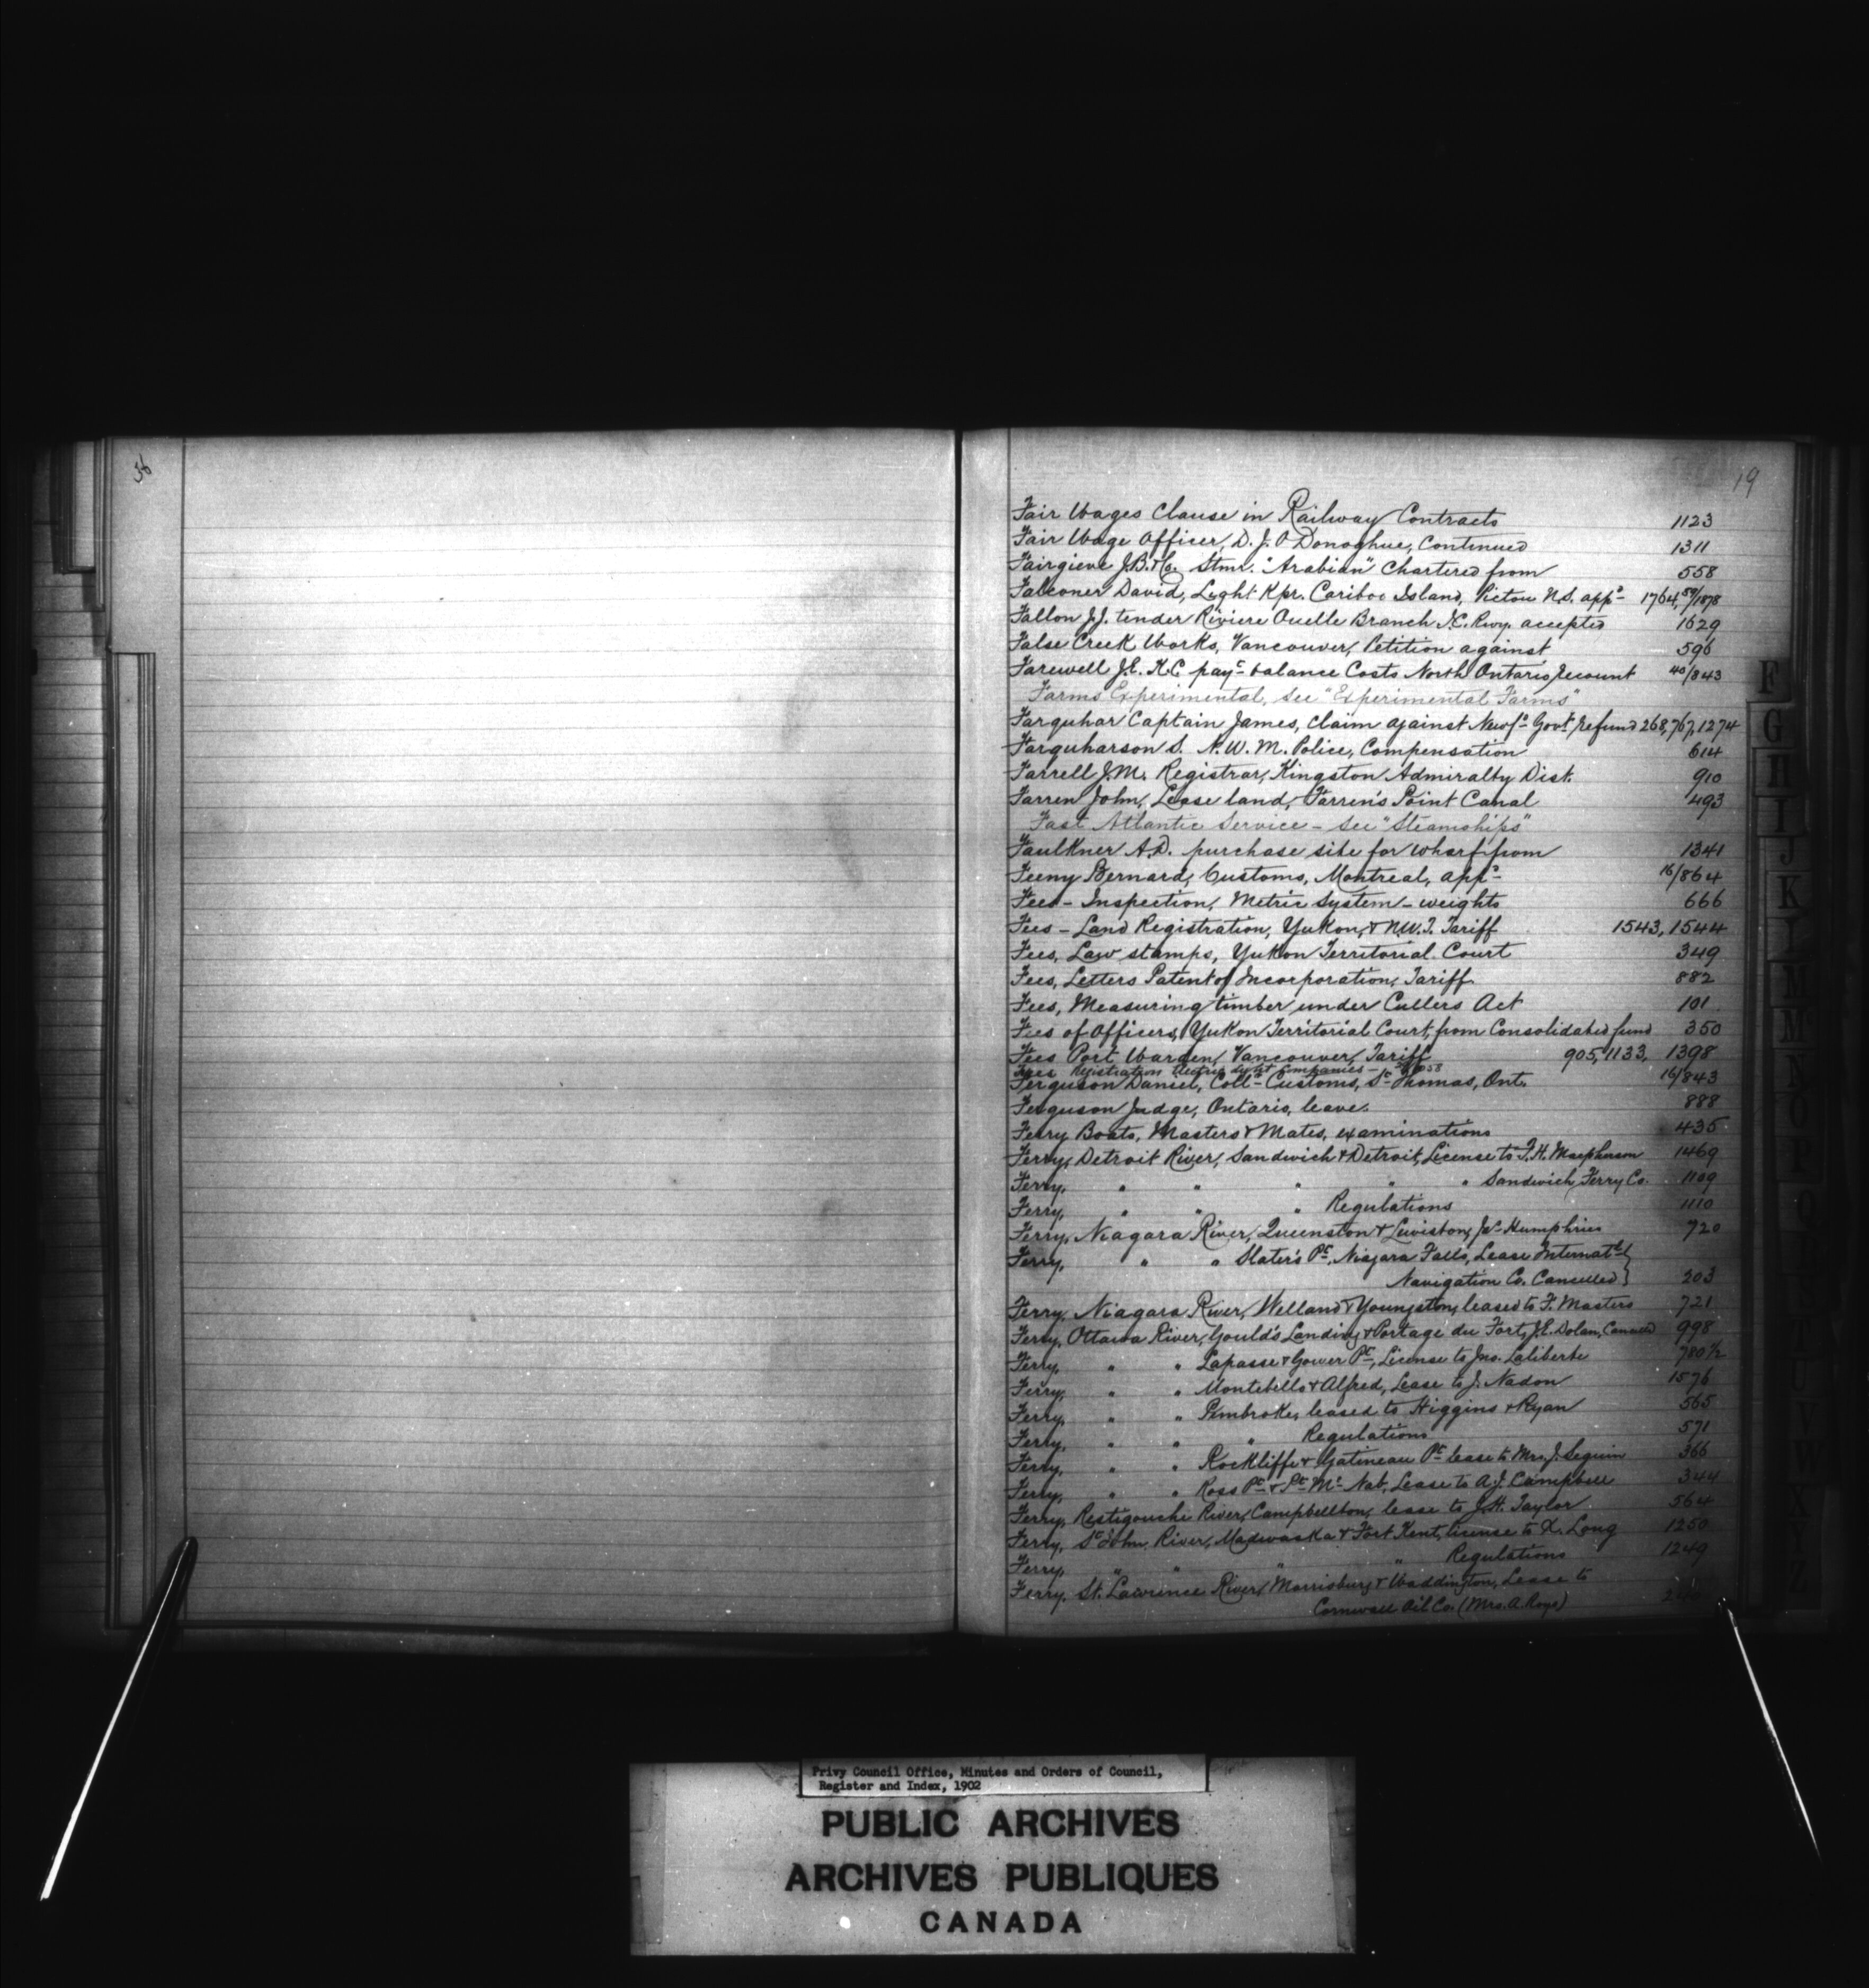 36
19
Fair Wages Clause in Railway Contracts 1123
Fair Wage Officer, D. J. O'Donoghue, Continued 1311
Fairgieve J.B. & Co. Stmr. "Arabian" Chartered from 558
Falconer David, Light Kpr. Cariboo Island, Pictou N.S. app^t 1764, 59/1878
Fallon J.J. tender Riviere Ouelle Branch I.C. Rwy. accepted 1629
False Creek Works, Vancouver, Petition against 596
Farewell J.E. K.C. pay^t balance Costs North Ontario Recount 40/843
Farms Experimental, see "Experimental Farms"
Farquhar Captain James, Claim against Newf^d Gov^t refund 268, 767, 1274
Farquharson S. N.W.M. Police, Compensation 614
Farrell J.M. Registrar, Kingston Admiralty Dist. 910
Farren John, Lease land, Farren's Point Canal 493
Fast Atlantic Service - see "Steamships"
Faulkner A.D. purchase site for wharf from 1341
Feeny Bernard, Customs, Montreal, app^t 16/864
Fees - Inspection, Metric System - weights 666
Fees - Land Registration, Yukon, & N.W.T. Tariff 1543, 1544
Fees, Law stamps, Yukon Territorial Court 349
Fees, Letters Patent of Incorporation, Tariff 882
Fees, Measuring timber under Cullers Act 101
Fees of Officers, Yukon Territorial Court, from Consolidated fund 350
Fees Port Warden, Vancouver, Tariff 905, 1133, 1398
Fees Registration Electric Light Companies
Ferguson Daniel, Coll^r Customs, S^t Thomas, Ont. 16/843
Ferguson Judge, Ontario, leave. 888
Ferry Boats, Masters & Mates, examinations 435
Ferry, Detroit River, Sandwich & Detroit, License to F.H. Macpherson 1469
Ferry, " " " " " Sandwich Ferry Co. 1109
Ferry, " " " Regulations 1110
Ferry, Niagara River, Queenston & Lewiston, Ja^s Humphries 720
Ferry, " " Slater's P^t, Niagara Falls, Lease Internat^l }
Navigation Co. Cancelled } 203
Ferry, Niagara River, Welland & Youngston, leased to F. Masters 721
Ferry, Ottawa River, Gould's Landing & Portage du Fort, J.E. Dolan, 998
Ferry, " " Lapasse & Gower P^t, License to Jno. Laliberte 780½
Ferry, " " Montebello & Alfred, Lease to J. Nadon 1576
Ferry, " " Pembroke, leased to Higgins & Ryan 565
Ferry, " " " Regulations 571
Ferry, " " Rockliffe & Gatineau P^t lease to Mrs. J. Seguin 366
Ferry, " " Ross P^t & P^t M^c Nab, Lease to A.J. Campbell 344
Ferry, Restigouche River, Campbellton, lease to J.H. Taylor 564
Ferry, S^t John River, Madawaska & Fort Kent, license to X. Long 1250
Ferry, " " " " Regulations 1249
Ferry, St. Lawrence River, Morrisburg & Waddington, Lease to
Cornwall Oil Co. (Mrs. A. Roys)
F
G
H
I
J
K
L
M
M
N
O
Privy Council Office, Minutes and Orders of Council,
Register and Index, 1902
PUBLIC ARCHIVES
ARCHIVES PUBLIQUES
CANADA